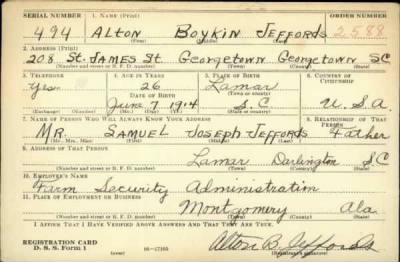 SERIAL NUMBER 1. NAME (Print) ORDER NUMBER
494 ALTON BOYKIN JEFFORDS 2588
(First) (Middle) (Last)
2. ADDRESS (Print)
208 St. JAMES St. GEORGETOWN GEORGETOWN SC
(Number and street or R. F. D. number) (Town) (County) (State)
3. TELEPHONE 4. AGE IN YEARS 5. PLACE OF BIRTH 6. COUNTRY OF CITIZENSHIP
Yes 26 Lamar
DATE OF BIRTH (Town or county)
June 7 1914 S.C. U.S.A
(Exchange) (Number) (Mo.) (Day) (Yr.) (State or country)
7. NAME OF PERSON WHO WILL ALWAYS KNOW YOUR ADDRESS 8. RELATIONSHIP OF THAT PERSON
MR. SAMUEL JOSEPH JEFFORDS Father
(Mr., Mrs., Miss) (First) (Middle) (Last)
9. ADDRESS OF THAT PERSON
Lamar Darlington SC
(Number and street or R. F. D. number) (Town) (County) (State)
10. EMPLOYER'S NAME
Farm Security Administration
11. PLACE OF EMPLOYMENT OR BUSINESS
Montgomery Ala.
(Number and street or R. F. D. number) (Town) (County) (State)
I AFFIRM THAT I HAVE VERIFIED ABOVE ANSWERS AND THAT THEY ARE TRUE.
REGISTRATION CARD
D. S. S. Form 1 (over) 16-17105 Alton B. Jeffords
(Registrant's signature)